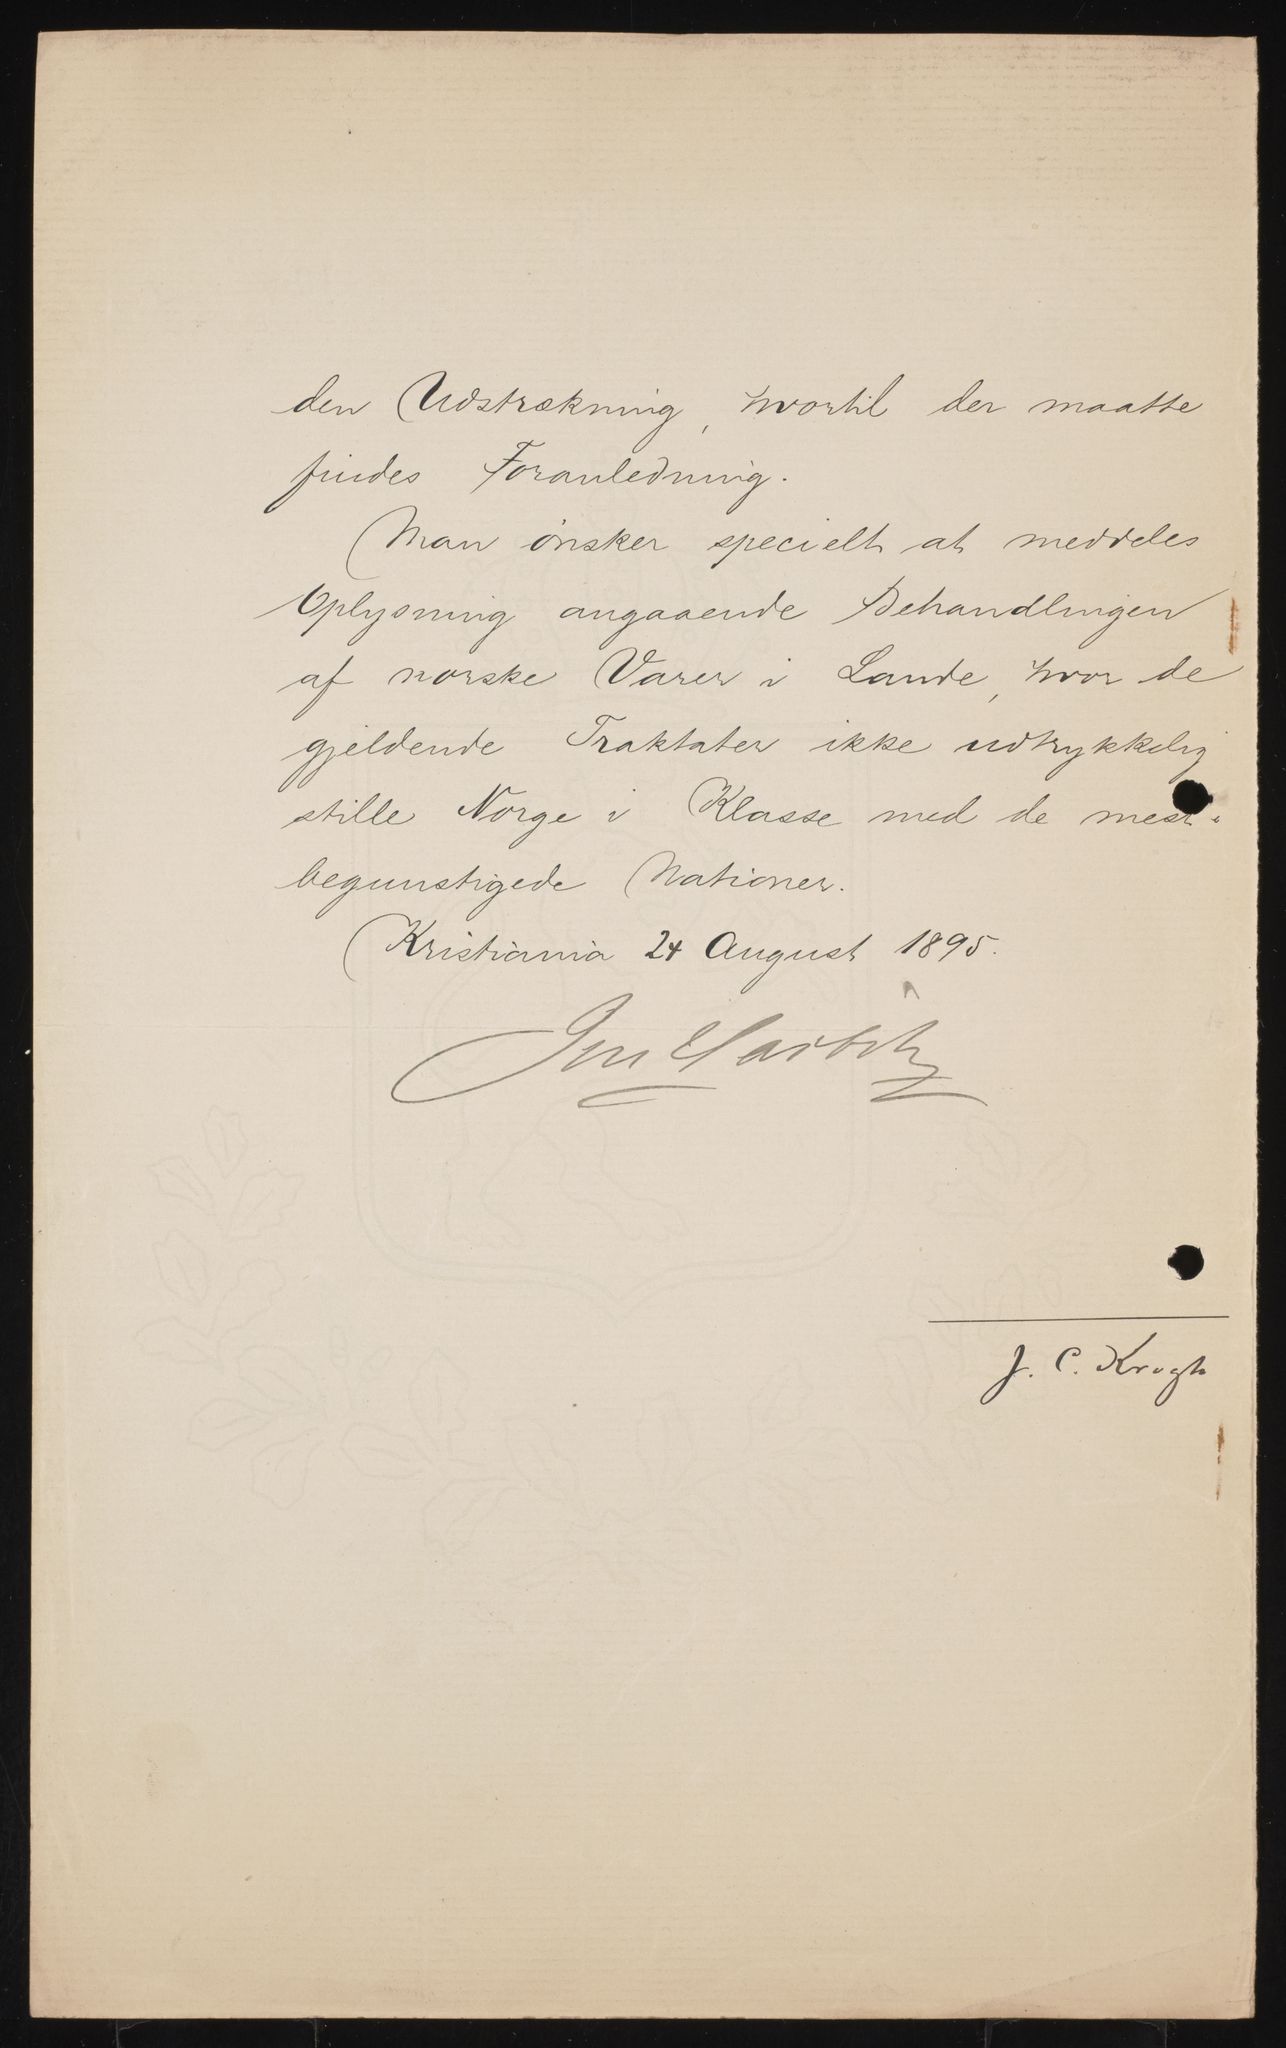 den Udstrækning, hvortil der maatte
findes Foranledning.
Man ønsker specielt at meddeles
Oplysning angaaende Behandlingen
af norske Varer i Lande, hvor de
gjeldende Traktater ikke udtrykkelig
stille Norge i Klasse med de mest
begunstigede Nationer.
Kristiania 24 August 1895.
J. C. Krogh